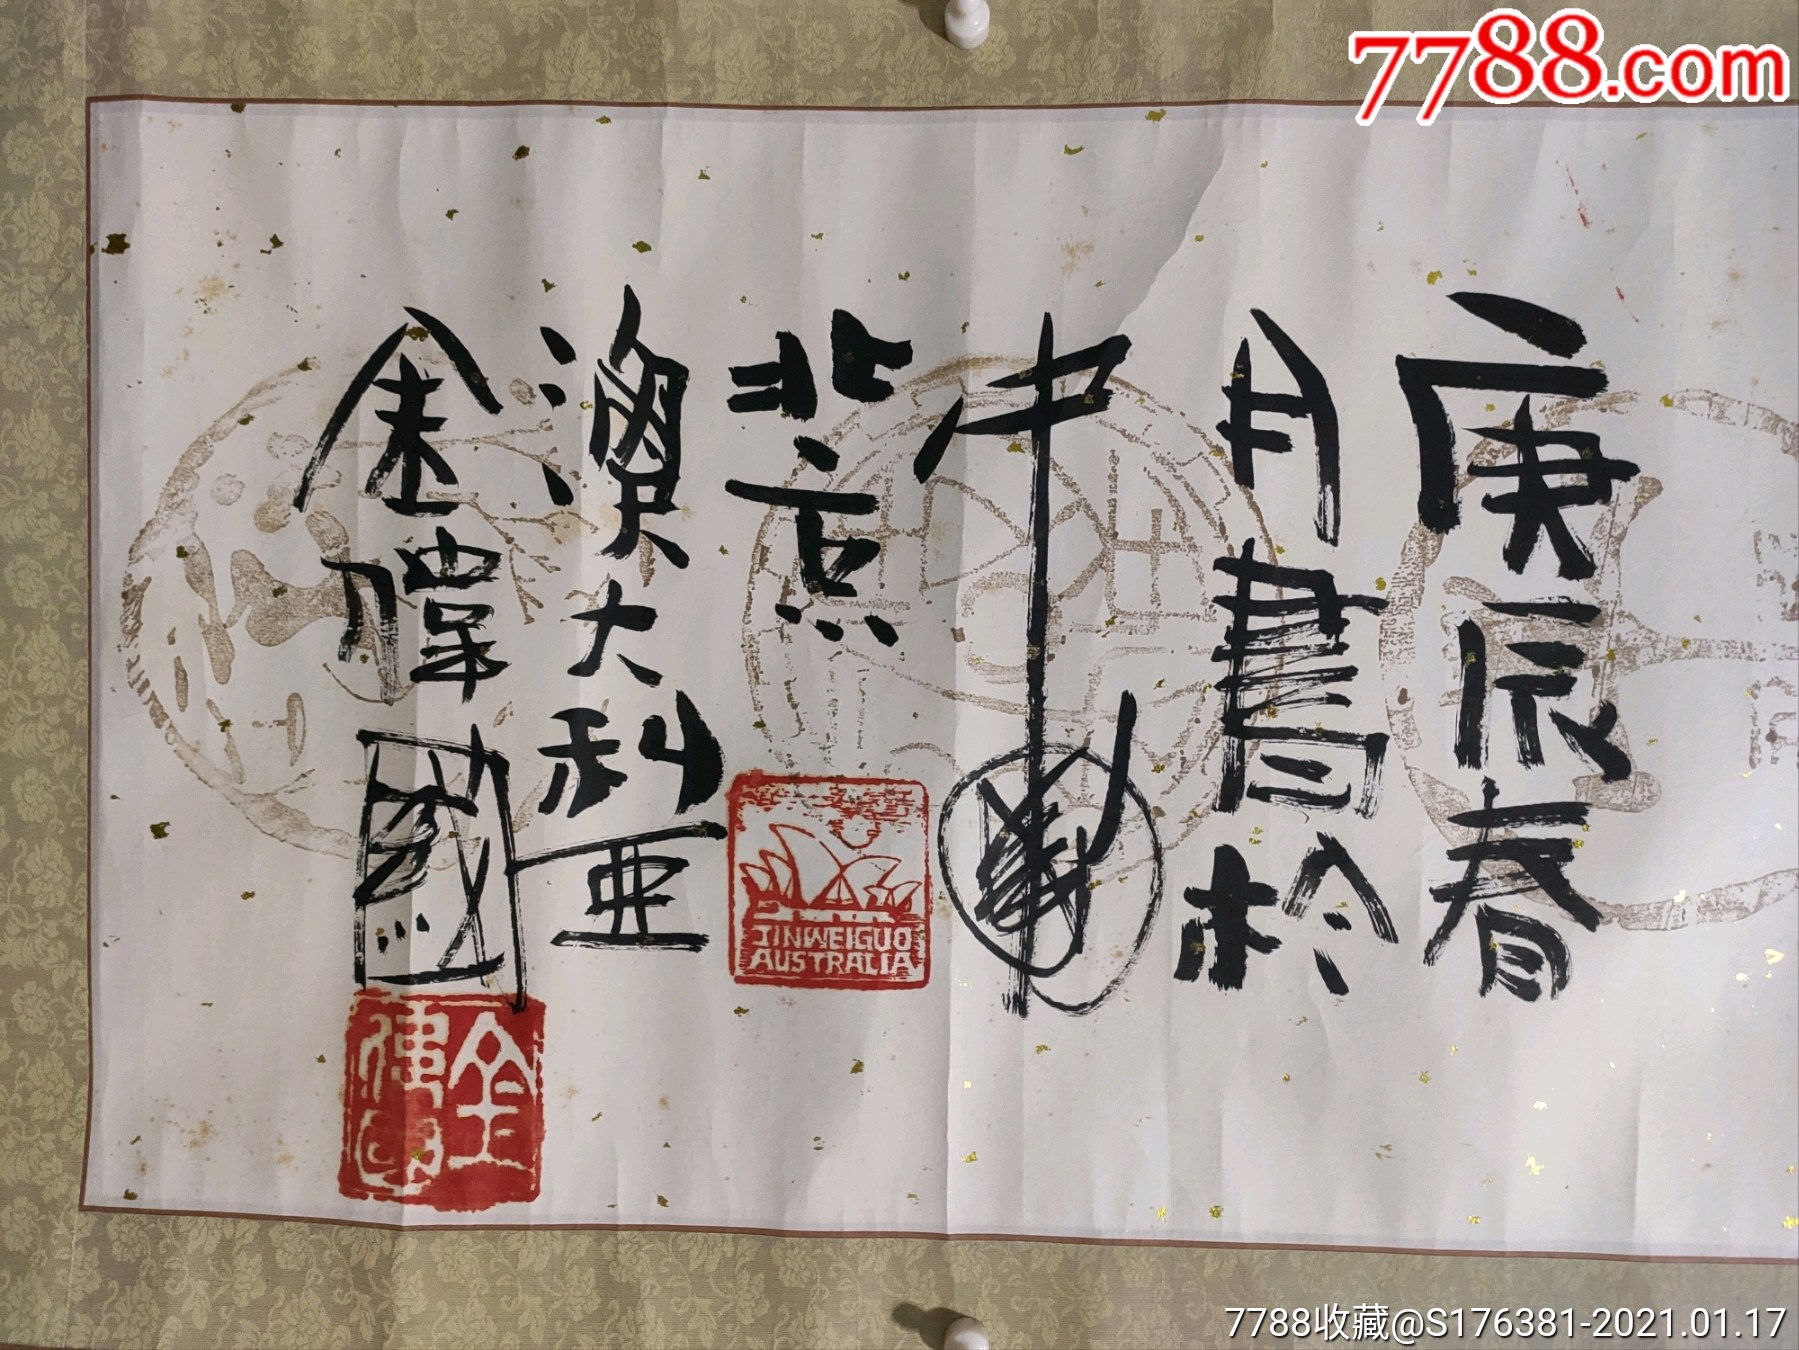 7788.com
庚辰春
月書於
中國
北京
澳大利亚
金偉國
JINWEIGUO
AUSTRALIA
金偉國
7788收藏@S176381-2021.01.17